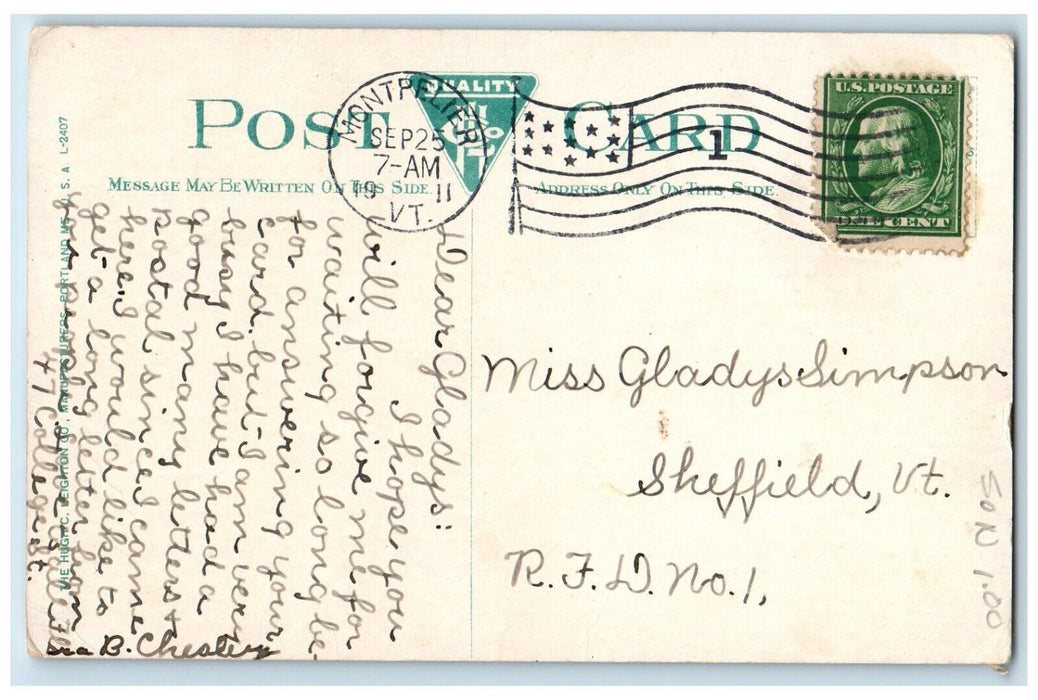 POST CARD
QUALITY
MESSAGE MAY BE WRITTEN ON THIS SIDE.
ADDRESS ONLY ON THIS SIDE.
MONTPELIER
SEP 25
7-AM
19 11
VT.
1
U.S. POSTAGE
ONE CENT
Dear Gladys:
I hope you
will forgive me for
waiting so long be-
for answering your
card. but I am very
busy I have had a
good many letters &
postal since I came
here. I would like to
get a long letter from
47 College St.
B. Chester
Miss Gladys Simpson
Sheffield, Vt.
R.F.D. No. 1,
THE HUGH C. LEIGHTON CO., MANUFACTURERS, PORTLAND, ME. U.S.A. L-2407
1.00